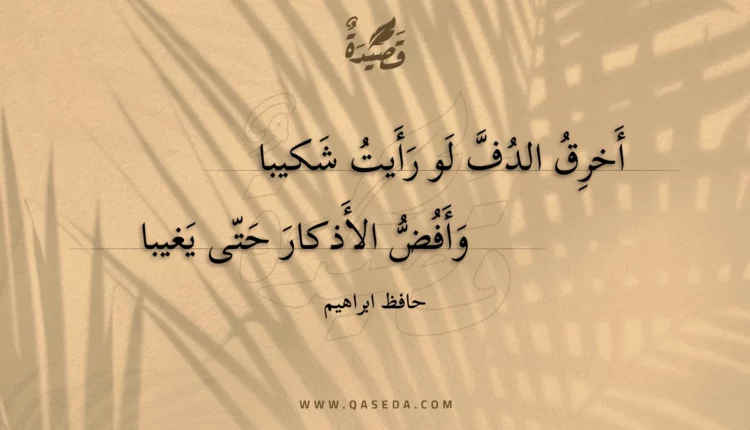 قَصِيدَةٌ
أَخرِقُ الدُفَّ لَو رَأَيتُ شَكيبا
وَأَفُضُّ الأَذكارَ حَتّى يَغيبا
حافظ ابراهيم
WWW.QASEDA.COM